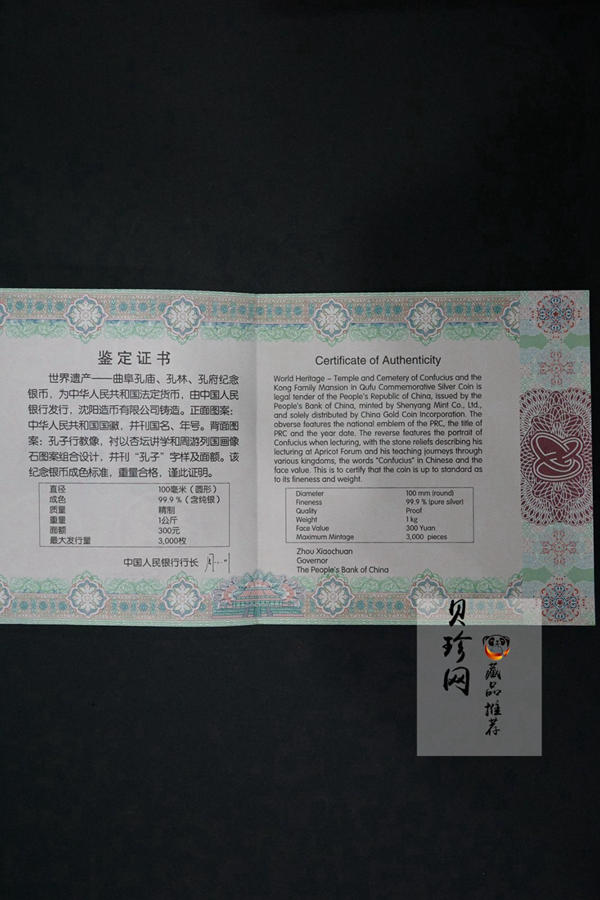 鉴定证书
世界遗产——曲阜孔庙、孔林、孔府纪念
银币，为中华人民共和国法定货币，由中国人民
银行发行，沈阳造币有限公司铸造。正面图案：
中华人民共和国国徽，并刊国名、年号。背面图
案：孔子行教像，衬以杏坛讲学和周游列国画像
石图案组合设计，并刊“孔子”字样及面额。该
纪念银币成色标准，重量合格，谨此证明。
直径 100毫米（圆形）
成色 99.9％（含纯银）
质量 精制
重量 1公斤
面额 300元
最大发行量 3,000枚
中国人民银行行长
Certificate of Authenticity
World Heritage – Temple and Cemetery of Confucius and the
Kong Family Mansion in Qufu Commemorative Silver Coin is
legal tender of the People's Republic of China, issued by the
People's Bank of China, minted by Shenyang Mint Co., Ltd.,
and solely distributed by China Gold Coin Incorporation. The
obverse features the national emblem of the PRC, the title of
PRC and the year date. The reverse features the portrait of
Confucius when lecturing, with the stone reliefs describing his
lecturing at Apricot Forum and his teaching journeys through
various kingdoms, the words "Confucius" in Chinese and the
face value. This is to certify that the coin is up to standard as
to its fineness and weight.
Diameter 100 mm (round)
Fineness 99.9 % (pure silver)
Quality Proof
Weight 1 kg
Face Value 300 Yuan
Maximum Mintage 3,000 pieces
Zhou Xiaochuan
Governor
The People's Bank of China
贝珍网
藏品推荐